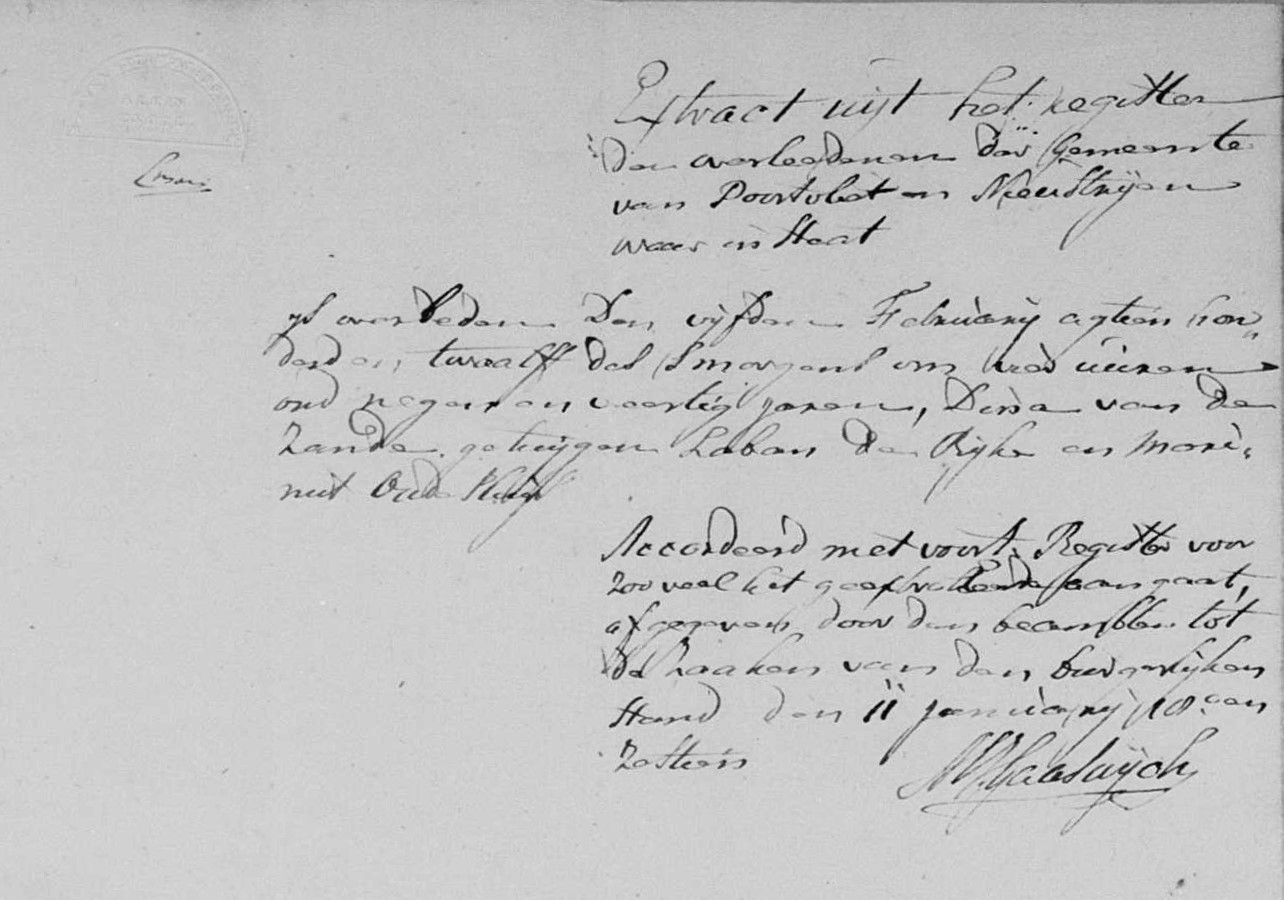 Extract uijt het register
der overleedenen der Gemeente
van Poortvliet en Nieustrijen
waar in staat
ys overleden Den vijfden Februarij agtien hon„
derd en twaalf des smorgens om uuren
oud negen en veertig jaren, Dina van De
Zande. getuijgen Laban de Rijke en Mari„
nus Oude
Accordeerd met voors. Register voor
zoo veel het geextraheerde aangaat,
afgegeven door den beambten tot
de zaaken van den burgerlijken
stand den 11 januarij 18 en
zestien